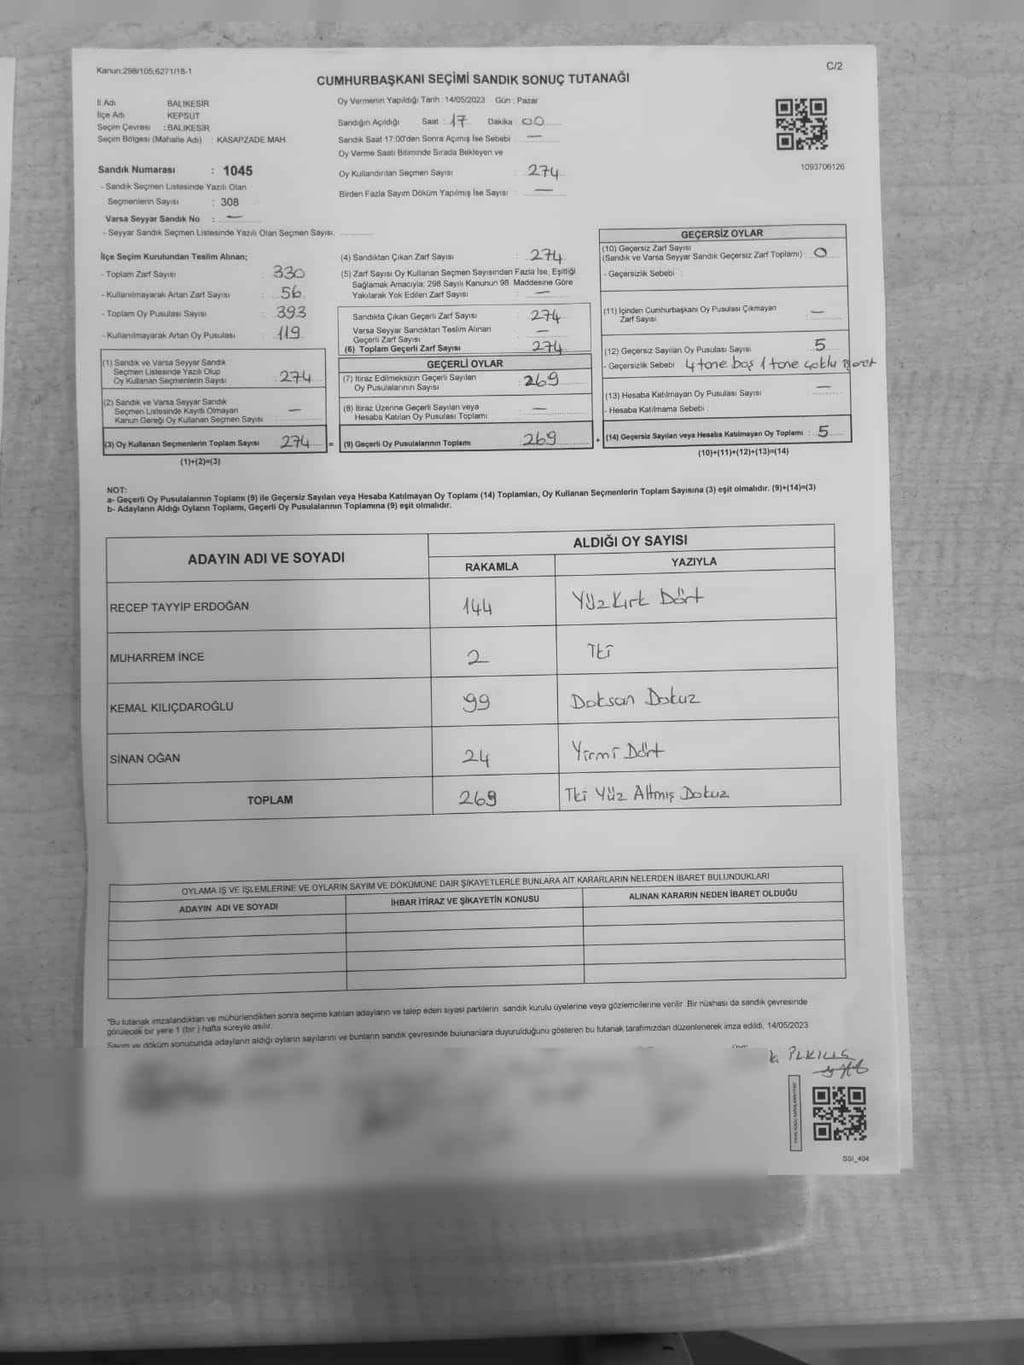 Kanun:298/105,6271/18-1
C/2
CUMHURBAŞKANI SEÇİMİ SANDIK SONUÇ TUTANAĞI
İl Adı BALIKESİR
İlçe Adı KEPSUT
Seçim Çevresi :BALIKESİR
Seçim Bölgesi (Mahalle Adı) : KASAPZADE MAH.
Sandık Numarası : 1045
- Sandık Seçmen Listesinde Yazılı Olan
Seçmenlerin Sayısı : 308
Varsa Seyyar Sandık No : —
- Seyyar Sandık Seçmen Listesinde Yazılı Olan Seçmen Sayısı:
Oy Vermenin Yapıldığı Tarih : 14/05/2023 Gün : Pazar
Sandığın Açıldığı Saat : 17 Dakika 00
Sandık Saat 17:00'den Sonra Açılmış İse Sebebi —
Oy Verme Saati Bitiminde Sırada Bekleyen ve
Oy Kullandırılan Seçmen Sayısı : 274
Birden Fazla Sayım Döküm Yapılmış İse Sayısı : —
1093706126
İlçe Seçim Kurulundan Teslim Alınan;
- Toplam Zarf Sayısı : 330
- Kullanılmayarak Artan Zarf Sayısı : 56
- Toplam Oy Pusulası Sayısı : 393
- Kullanılmayarak Artan Oy Pusulası : 119
(1) Sandık ve Varsa Seyyar Sandık
Seçmen Listesinde Yazılı Olup
Oy Kullanan Seçmenlerin Sayısı : 274
(2) Sandık ve Varsa Seyyar Sandık
Seçmen Listesinde Kayıtlı Olmayan
Kanun Gereği Oy Kullanan Seçmen Sayısı : —
(3) Oy Kullanan Seçmenlerin Toplam Sayısı : 274
(1)+(2)=(3)
(4) Sandıktan Çıkan Zarf Sayısı : 274
(5) Zarf Sayısı Oy Kullanan Seçmen Sayısından Fazla İse, Eşitliği
Sağlamak Amacıyla; 298 Sayılı Kanunun 98. Maddesine Göre
Yakılarak Yok Edilen Zarf Sayısı : —
Sandıkta Çıkan Geçerli Zarf Sayısı : 274
Varsa Seyyar Sandıktan Teslim Alınan
Geçerli Zarf Sayısı : —
(6) Toplam Geçerli Zarf Sayısı : 274
GEÇERLİ OYLAR
(7) İtiraz Edilmeksizin Geçerli Sayılan
Oy Pusulalarının Sayısı : 269
(8) İtiraz Üzerine Geçerli Sayılan veya
Hesaba Katılan Oy Pusulası Toplamı : —
= (9) Geçerli Oy Pusulalarının Toplamı : 269
GEÇERSİZ OYLAR
(10) Geçersiz Zarf Sayısı
(Sandık ve Varsa Seyyar Sandık Geçersiz Zarf Toplamı) : 0
- Geçersizlik Sebebi :
(11) İçinden Cumhurbaşkanı Oy Pusulası Çıkmayan
Zarf Sayısı : —
(12) Geçersiz Sayılan Oy Pusulası Sayısı : 5
- Geçersizlik Sebebi : 4 tane boş 1 tane çoklu
(13) Hesaba Katılmayan Oy Pusulası Sayısı : —
- Hesaba Katılmama Sebebi :
+ (14) Geçersiz Sayılan veya Hesaba Katılmayan Oy Toplamı : 5
(10)+(11)+(12)+(13)=(14)
NOT:
a- Geçerli Oy Pusulalarının Toplamı (9) ile Geçersiz Sayılan veya Hesaba Katılmayan Oy Toplamı (14) Toplamları, Oy Kullanan Seçmenlerin Toplam Sayısına (3) eşit olmalıdır. (9)+(14)=(3)
b- Adayların Aldığı Oyların Toplamı, Geçerli Oy Pusulalarının Toplamına (9) eşit olmalıdır.
ADAYIN ADI VE SOYADI
ALDIĞI OY SAYISI
RAKAMLA YAZIYLA
RECEP TAYYİP ERDOĞAN 144 Yüz Kırk Dört
MUHARREM İNCE 2 İki
KEMAL KILIÇDAROĞLU 99 Doksan Dokuz
SİNAN OĞAN 24 Yirmi Dört
TOPLAM 269 İki Yüz Altmış Dokuz
OYLAMA İŞ VE İŞLEMLERİNE VE OYLARIN SAYIM VE DÖKÜMÜNE DAİR ŞİKAYETLERLE BUNLARA AİT KARARLARIN NELERDEN İBARET BULUNDUKLARI
ADAYIN ADI VE SOYADI İHBAR İTİRAZ VE ŞİKAYETİN KONUSU ALINAN KARARIN NEDEN İBARET OLDUĞU
*Bu tutanak imzalandıktan ve mühürlendikten sonra seçime katılan adayların ve talep eden siyasi partilerin sandık kurulu üyelerine veya gözlemcilerine verilir. Bir nüshası da sandık çevresinde
görülecek bir yere 1 (bir) hafta süreyle asılır.
Sayım ve döküm sonucunda adayların aldığı oyların sayılarını ve bunların sandık çevresinde bulunanlara duyurulduğunu gösteren bu tutanak tarafımızdan düzenlenerek imza edildi. 14/05/2023
SSI_404